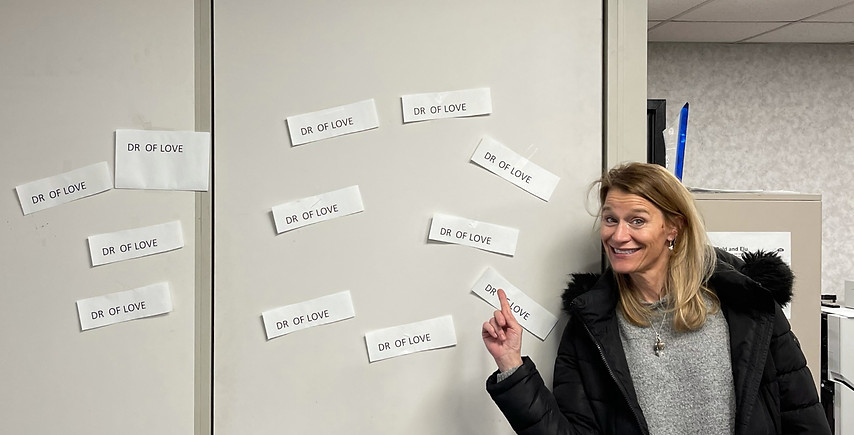 DR OF LOVE
DR OF LOVE
DR OF LOVE
DR OF LOVE
DR OF LOVE
DR OF LOVE
DR OF LOVE
DR OF LOVE
DR OF LOVE
DR OF LOVE
DR OF LOVE
DR OF LOVE
and